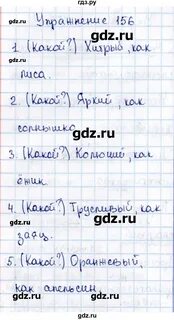 гдз.ру
Упражнение 156
gdz.ru
1. (Какой?) Хитрый, как
gdz.ru
лиса.
gdz.ru
2. (Какой?) Яркий, как
gdz.ru
солнышко
gdz.ru
3. (Какой?) Колючий, как
gdz.ru
ёжик
gdz.ru
4. (Какой?) Трусливый, как
gdz.ru
заяц.
gdz.ru
5. (Какой?) Оранжевый,
gdz.ru
как апельсин
gdz.ru